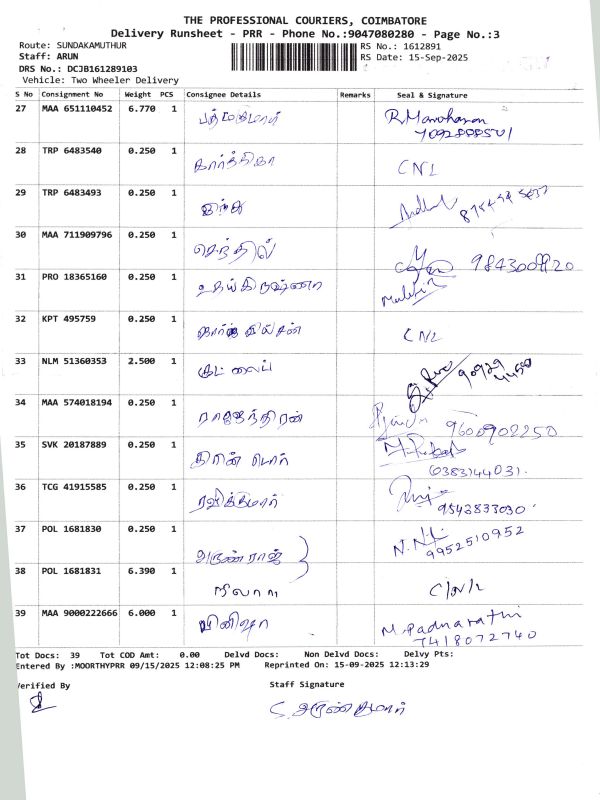 THE PROFESSIONAL COURIERS, COIMBATORE
Delivery Runsheet - PRR - Phone No.:9047080280 - Page No.:3
Route: SUNDAKAMUTHUR RS No.: 1612891
Staff: ARUN RS Date: 15-Sep-2025
DRS No.: DCJB161289103
Vehicle: Two Wheeler Delivery
S No Consignment No Weight PCS Consignee Details Remarks Seal & Signature
27 MAA 651110452 6.770 1 R. Manoharan
28 TRP 6483540 0.250 1 கார்த்திகா CNL
29 TRP 6483493 0.250 1 இந்து
30 MAA 711909796 0.250 1 செந்தில்
31 PRO 18365160 0.250 1 உதய்கிருஷ்ணா
32 KPT 495759 0.250 1 CNL
33 NLM 51360353 2.500 1
34 MAA 574018194 0.250 1 ராஜேந்திரன் 9600902250
35 SVK 20187889 0.250 1 6383144031.
36 TCG 41915585 0.250 1 ரவிக்குமார் 9543833030
37 POL 1681830 0.250 1 அருண்ராஜ் 9952510952
38 POL 1681831 6.390 1 C/N/L
39 MAA 9000222666 6.000 1 7418072740
Tot Docs: 39 Tot COD Amt: 0.00 Delvd Docs: Non Delvd Docs: Delvy Pts:
Entered By :MOORTHYPRR 09/15/2025 12:08:25 PM Reprinted On: 15-09-2025 12:13:29
Verified By Staff Signature
S. அருண்குமார்